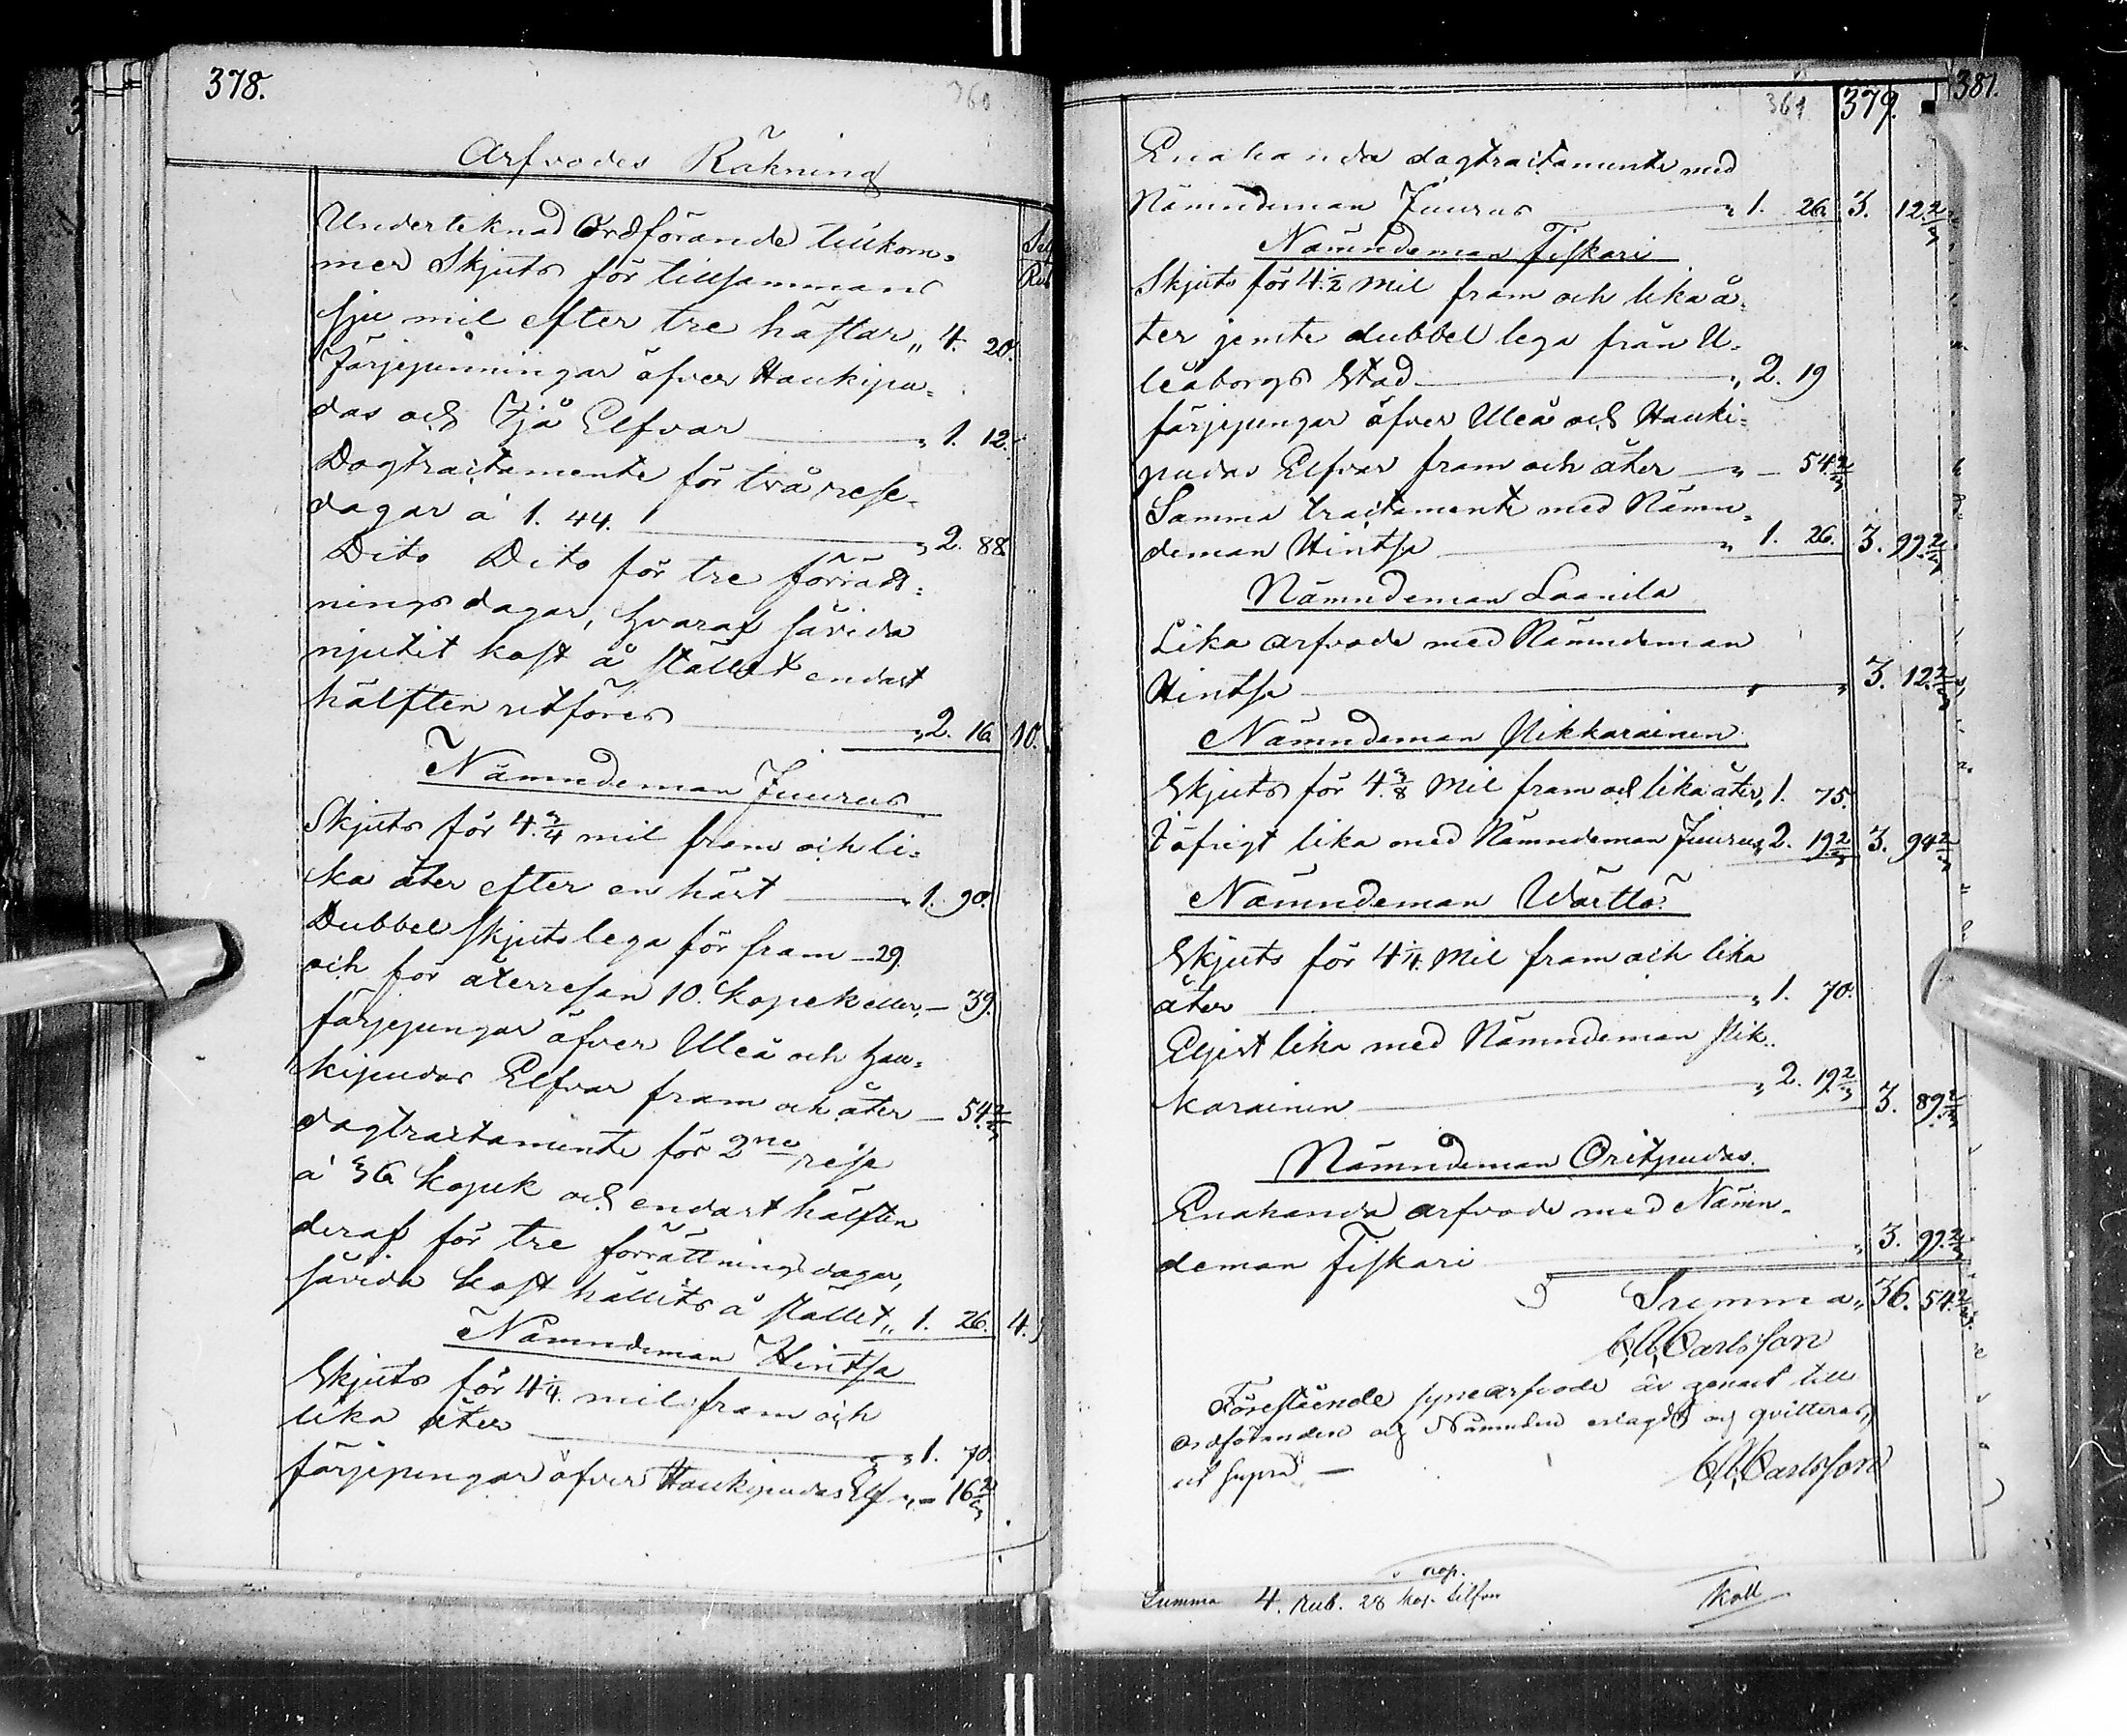 378.
360
Arfvodes Räkning
Sil
Rub
Undertecknad Ordförande tillkom=
mer Skjuts för tillsammans
sju mil efter tre hästar „ 4. 20.
Färjepenningar öfver Haukipu=
das och Ijå Elfvar „ 1. 12.
Dagtractamente för två rese=
dagar á 1. 44. „ 2. 88
Dito Dito för tre förrätt=
ningsdagar, hvaraf såvida
njutit kost å stället endast
hälften utföres „ 2. 16. 10.
Nämndeman Juurus
Skjuts för 4.3/4 mil fram och li=
ka åter efter en häst „ 1. 90.
Dubbel skjutslega för fram — 29.
och för återresan 10. kopek eller, — 39.
färjepengar öfver Uleå och Hau=
kipudas Elfvar fram och åter — 54.2/7
dagtractamente för 2ne rese
á 36 kopek och endast hälften
deraf för tre förrättningsdagar,
såvida kost hållits å stället „ 1. 26. 4.
Nämndeman Hintsa
Skjuts för 4 1/4. mil fram och
lika åter „ 1. 70.
färjepengar öfver Haukipudas Elf „ — 16 2/7
361
379.
381.
Enahanda dagtractamente med
Nämndeman Juurus „ 1. 26. 3. 12.2/7
Nämndeman Fiskari
Skjuts för 4.1/2 Mil fram och lika å=
ter jemte dubbel lega från U=
leåborgs Stad „ 2. 19
färjepengar öfver Uleå och Hauki=
pudas Elfvar fram och åter — „ — 54.2/7
Samma tractamente med Nämn=
deman Hintsa „ 1. 26. 3. 99.2/7
Nämndeman Laanila
Lika arfvode med Nämndeman
Hintsa „ „ 3. 12.2/7
Nämndeman Nikkarainen
Skjuts för 4.3/8 Mil fram och lika åter, 1. 75.
I öfrigt lika med Nämndeman Juurus, 2. 19 2/7 3. 94 2/7
Nämndeman Wärttö
Skjuts för 4 1/4. Mil fram och lika
åter „ 1. 70.
Eljest lika med Nämndeman Nik=
karainen „ 2. 19 2/7 3. 89.2/7
Nämndeman Oritpudas.
Enahanda arfvode med Nämn=
deman Fiskari „ 3. 99.2/7
Summa „ 36. 54.2/7
Carlsson
Förestående synearfvode är genast till
ordföranden och Nämnden erlagdt och qvitteras,
ut supra —
Carlsson
kop.
Summa 4. Rub. 28 kop. silfver